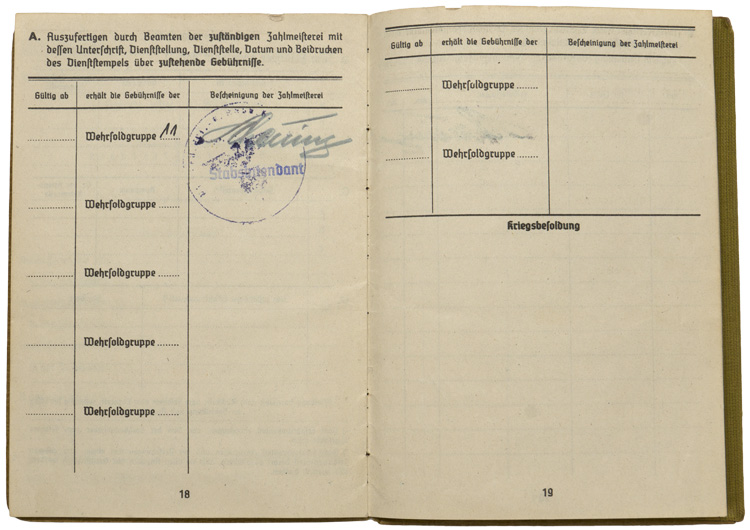 A. Auszufertigen durch Beamten der zuständigen Zahlmeisterei mit
dessen Unterschrift, Dienststellung, Dienststelle, Datum und Beidrucken
des Dienststempels über zustehende Gebührnisse.
Gültig ab erhält die Gebührnisse der Bescheinigung der Zahlmeisterei
Wehrsoldgruppe 11
Stabsintendant
Wehrsoldgruppe
Wehrsoldgruppe
Wehrsoldgruppe
Wehrsoldgruppe
18
Gültig ab erhält die Gebührnisse der Bescheinigung der Zahlmeisterei
Wehrsoldgruppe
Wehrsoldgruppe
Kriegsbesoldung
19